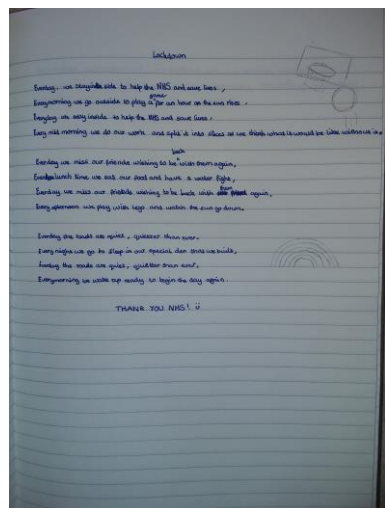 Lockdown
Everday, we stay inside to help the NHS and save lives,
Everymorning we go outside to play a game for an hour as the sun rises.
Everyday we stay inside to help the NHS and save lives.
Every mid morning we do our work and split it into slices as we think what is would be like without us in a
Everday we miss our friends wishing to be back with them again,
Every lunch time we eat our food and have a water fight,
Everday we miss our friends wishing to be back with them again,
Every afternoon we play with lego and watch the sun go down.
Everday the roads are quiet, quietter than ever,
Every night we go to sleep in our special den that we build,
Everday the roads are quiet, quietter than ever,
Everymorning we wake up ready to begin the day again.
THANK YOU NHS! ü